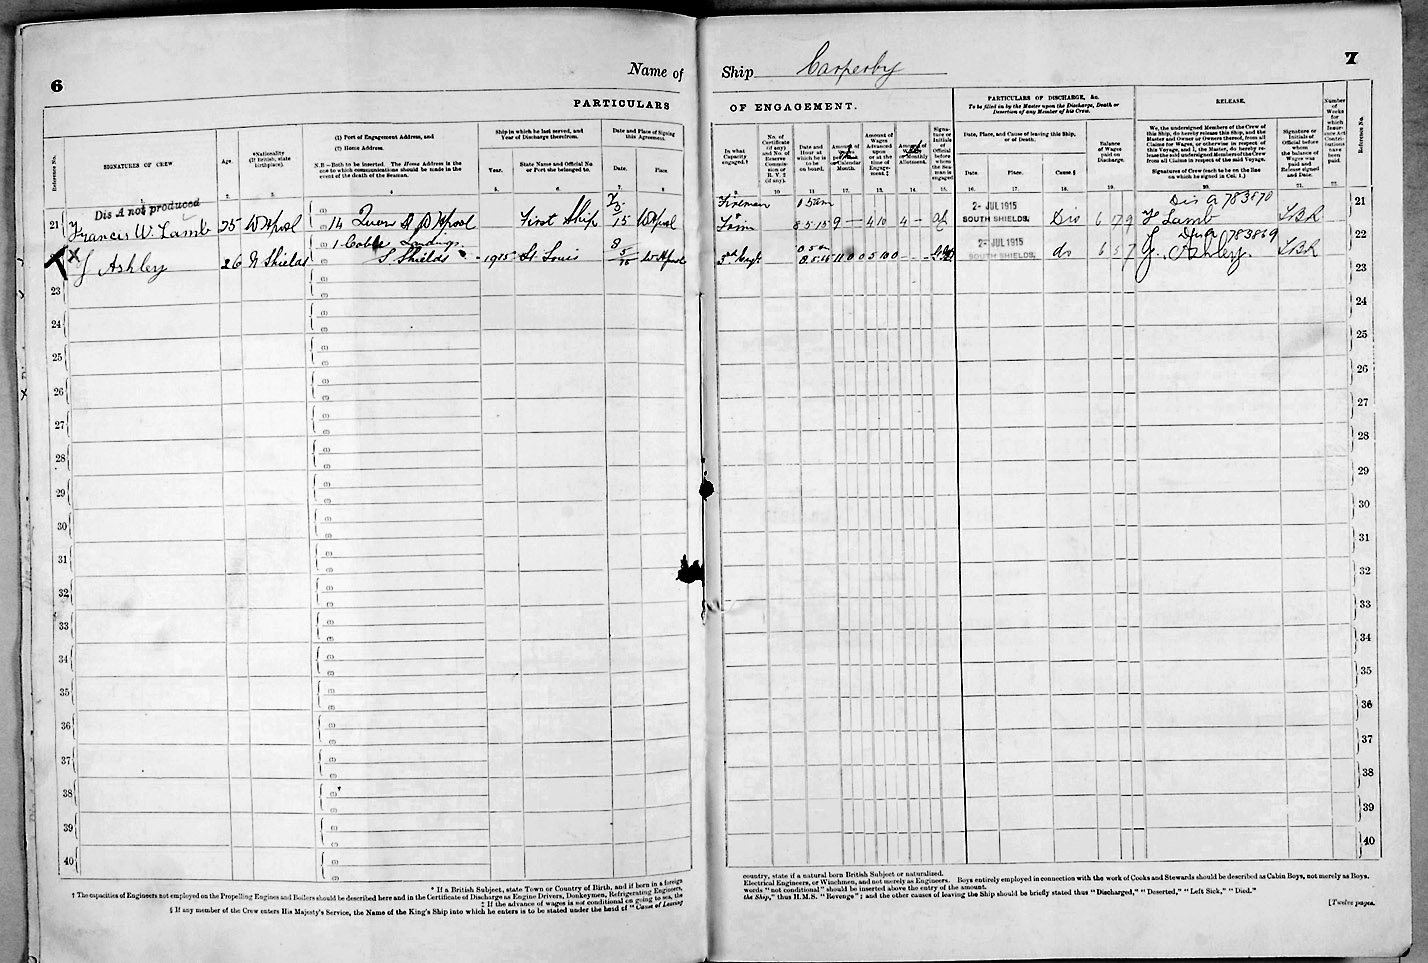 6
Name of
PARTICULARS
Reference No.
SIGNATURES OF CREW
1.
Age.
2.
*Nationality
(If British, state
birthplace).
3.
(1) Port of Engagement Address, and
(2) Home Address.
N.B.—Both to be inserted. The Home Address is the
one to which communications should be made in the
event of the death of the Seaman.
4
Ship in which he last served, and
Year of Discharge therefrom.
Year.
5.
State Name and Official No
or Port she belonged to.
6.
Date and Place of Signing
this Agreement.
Date.
7.
Place.
8.
Dis A not produced
21 Francis W. Lamb 25 W Hpool 14 St W Hpool First Ship 15 W Hpool
1 Landings
X J Ashley 26 N Shields S Shields 1915 St Louis 8/5/15 W Hpool
23
24
25
26
27
28
29
30
31
32
33
34
35
36
37
38
39
40
* If a British Subject, state Town or Country of Birth, and if born in a foreign
† The capacities of Engineers not employed on the Propelling Engines and Boilers should be described here and in the Certificate of Discharge as Engine Drivers, Donkeymen, Refrigerating Engineers,
‡ If the advance of wages is not conditional on going to sea, the
§ If any member of the Crew enters His Majesty's Service, the Name of the King's Ship into which he enters is to be stated under the head of "Cause of Leaving
Ship Carperby
7
OF ENGAGEMENT.
In what
Capacity
engaged.†
9.
No. of
Certificate
(if any),
and No. of
Reserve
Commis-
sion or
R.V.2
(if any).
10
Date and
Hour at
which he is
to be
on board.
11
Amount of
Wages
per Calendar
Month.
12.
Amount of
Wages
Advanced
upon
or at the
time of
Engage-
ment.‡
13.
Amount of
or Monthly
Allotment.
14.
Signa-
ture or
Initials
of
Official
before
whom
the Sea-
man is
engaged
15.
PARTICULARS OF DISCHARGE, &c.
To be filled in by the Master upon the Discharge, Death or
Desertion of any Member of his Crew.
Date, Place, and Cause of leaving this Ship,
or of Death.
Date.
16.
Place.
17.
Cause.§
18.
Balance
of Wages
paid on
Discharge.
19.
RELEASE.
We, the undersigned Members of the Crew of
this Ship, do hereby release this Ship, and the
Master and Owner or Owners thereof, from all
Claims for Wages, or otherwise in respect of
this Voyage, and I, the Master, do hereby re-
lease the said undersigned Members of the Crew
from all Claims in respect of the said Voyage.
Signatures of Crew (each to be on the line
on which he signed in Col. 1.)
20.
Signature or
Initials of
Official before
whom
the balance of
Wages was
paid and
Release signed
and Date.
21.
Number
of
Weeks
for
which
Insur-
ance Act
Contri-
butions
have
been
paid.
22.
Reference No.
Fireman 5 am 2- JUL 1915 Dis A 783870 21
Trim 8 5 15 9 — 4 10 4 — SOUTH SHIELDS. Dis 6 17 9 F Lamb LBR
2- JUL 1915 Dis A 783869 22
3rd Engr 8.5.15 SOUTH SHIELDS. do J. Ashley. LBR
23
24
25
26
27
28
29
30
31
32
33
34
35
36
37
38
39
40
country, state if a natural born British Subject or naturalized.
Electrical Engineers, or Winchmen, and not merely as Engineers. Boys entirely employed in connection with the work of Cooks and Stewards should be described as Cabin Boys, not merely as Boys.
words "not conditional" should be inserted above the entry of the amount.
the Ship," thus H.M.S. "Revenge"; and the other causes of leaving the Ship should be briefly stated thus "Discharged," "Deserted," "Left Sick," "Died."
[Twelve pages.